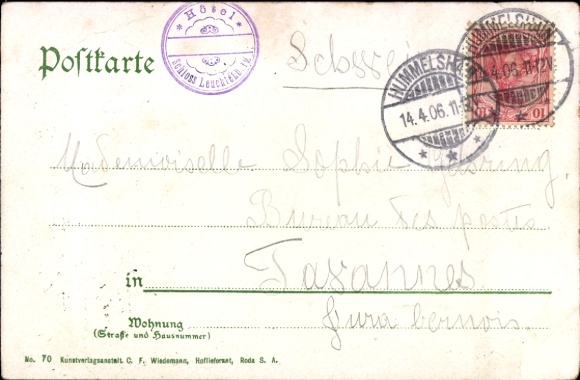 * Hôtel *
Schloss Leuchtenburg
Postkarte
Schweiz
HUMMELSHAIN
14.4.06.11-12V.
HUMMELSHAIN
14.4.06.11-12V.
10 10
Mademoiselle Sophie
Bureau des postes
in Tavannes
Wohnung
(Straße und Hausnummer)
Jura bernois.
No. 70 Kunstverlagsanstalt C. F. Wiedemann, Hoflieferant, Roda S. A.